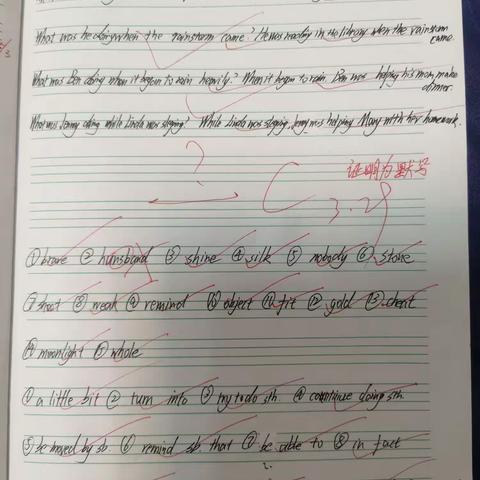 What was he doing when the rainstorm came? He was reading in the library when the rainstorm came.
What was Ben doing when it began to rain heavily? When it began to rain Ben was helping his mom make dinner.
What was Jenny doing while Linda was sleeping? While Linda was sleeping, Jenny was helping Mary with her homework.
?
C
证明为默写
3.28
①brave ② hunsband ③ shine ④ silk ⑤ nobody ⑥ stone
⑦shoot ⑧ weak ⑨ remind ⑩ object ⑪ fit ⑫ gold ⑬ cheat
⑭ moonlight ⑮ whole
① a little bit ② turn into ③ try to do sth. ④ continue doing sth.
⑤ be moved by sb. ⑥ remind sb. that ⑦ be able to ⑧ in fact